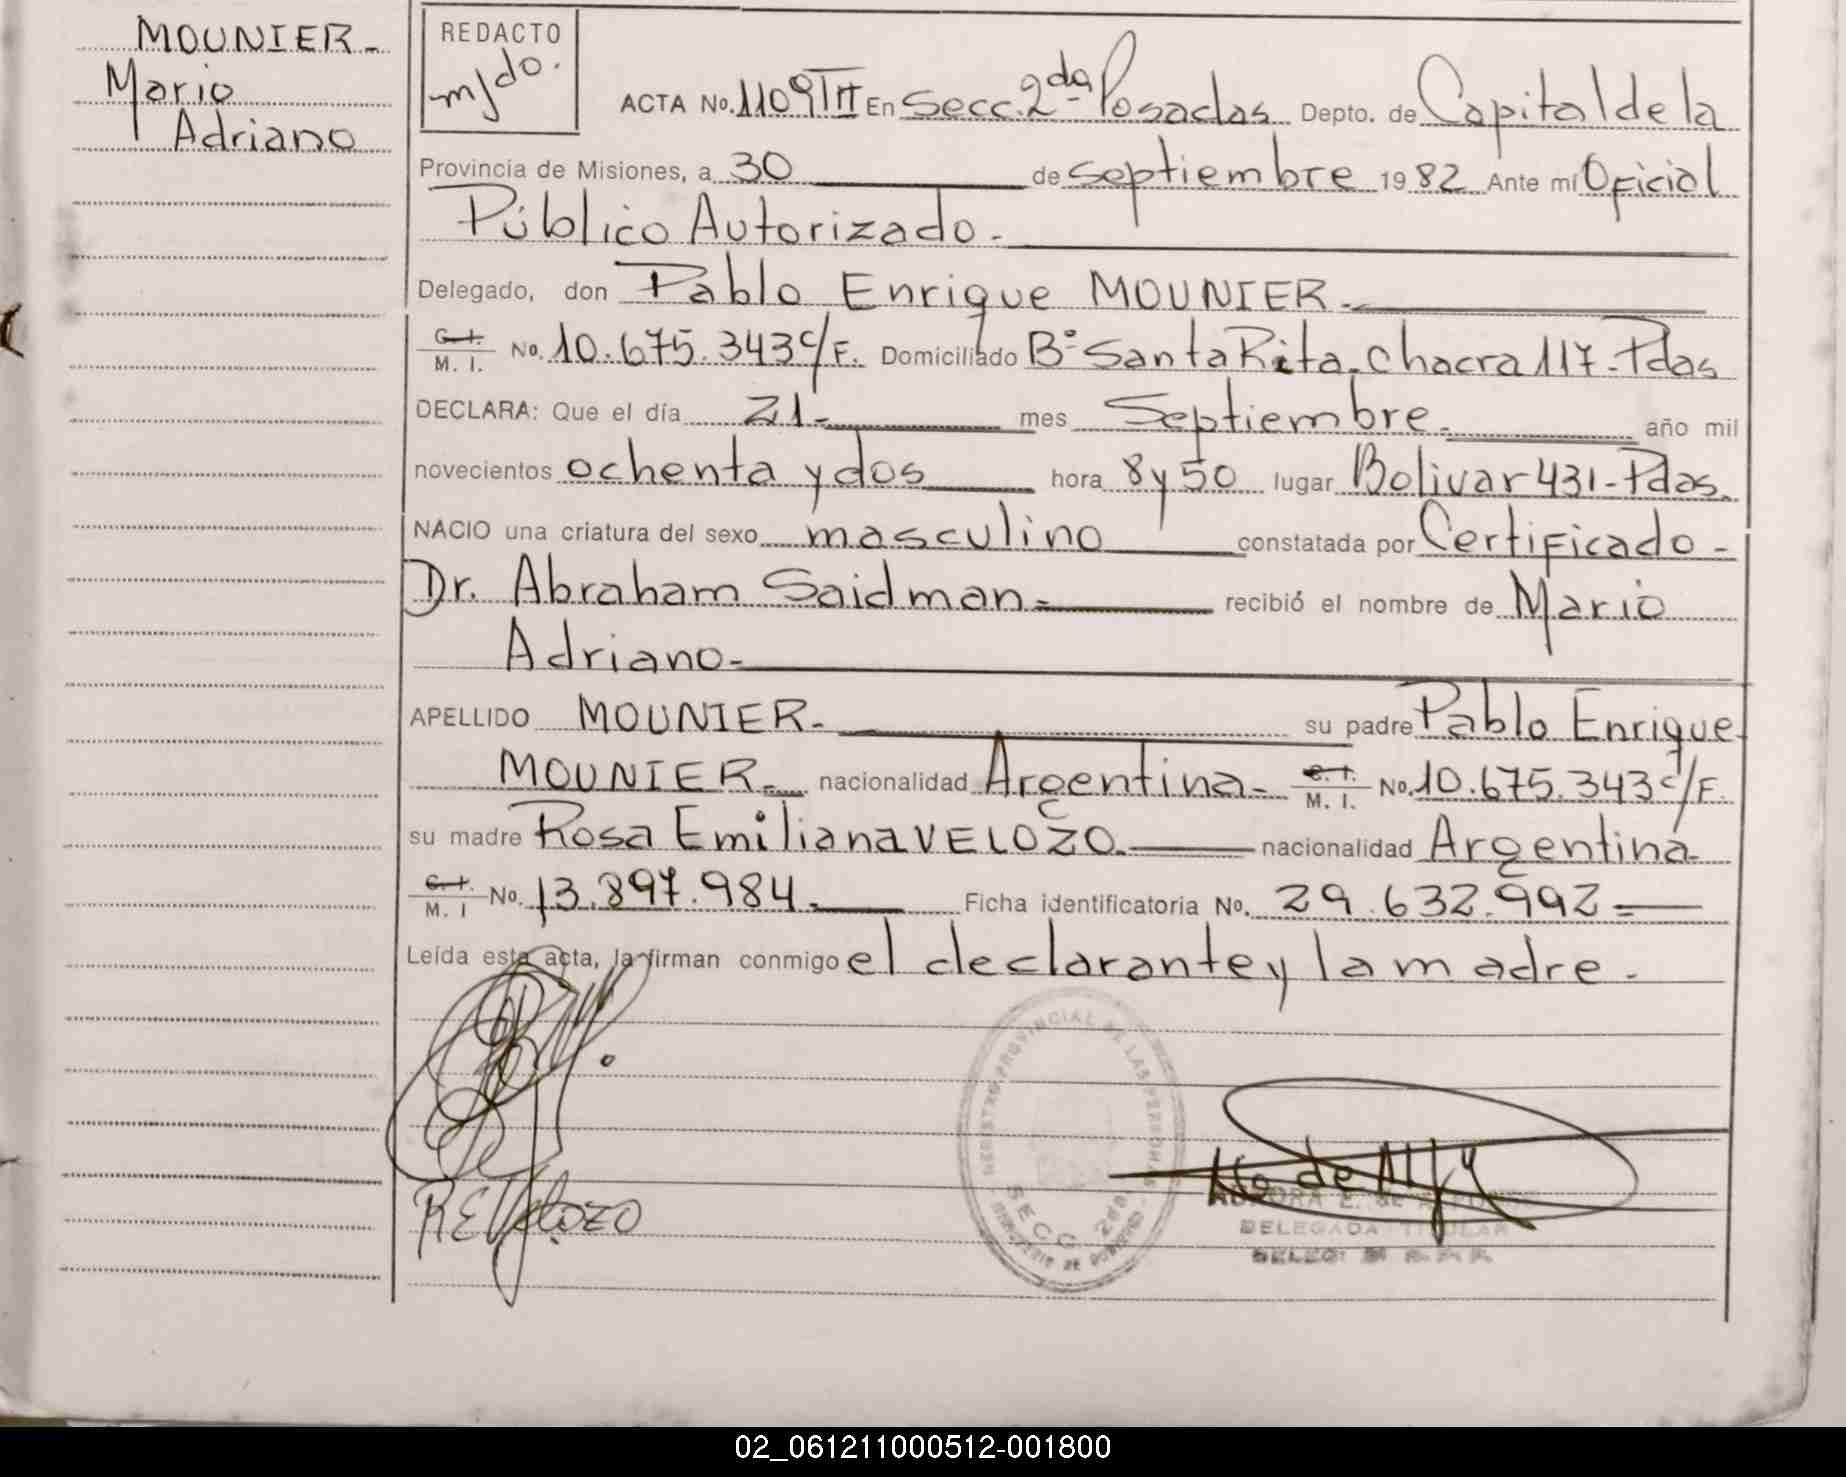 MOUNIER-
Mario
Adriano
REDACTO
m/do.
ACTA No. 1109 TIII En Secc. 2da Posadas Depto. de Capital de la
Provincia de Misiones, a 30 de septiembre 19 82 Ante mí Oficial
Público Autorizado-
Delegado, don Pablo Enrique MOUNIER-
C. I.
M. I. No. 10.675.343 C/F. Domiciliado Bº Santa Rita. Chacra 117-Pdas
DECLARA: Que el día 21- mes Septiembre- año mil
novecientos ochenta y dos hora 8 y 50 lugar Bolivar 431-Pdas.
NACIO una criatura del sexo masculino constatada por Certificado-
Dr. Abraham Saidman- recibió el nombre de Mario
Adriano-
APELLIDO MOUNIER- su padre Pablo Enrique
MOUNIER- nacionalidad Argentina- C. I.
M. I. No. 10.675.343 C/F.
su madre Rosa Emiliana VELOZO- nacionalidad Argentina-
C. I.
M. I No. 13.897.984- Ficha identificatoria No. 29.632.992=
Leída esta acta, la firman conmigo el declarante y la madre-
REGISTRO PROVINCIAL DE LAS PERSONAS
SECC. 2da
REVelozo
DELEGADA TITULAR
02_061211000512-001800